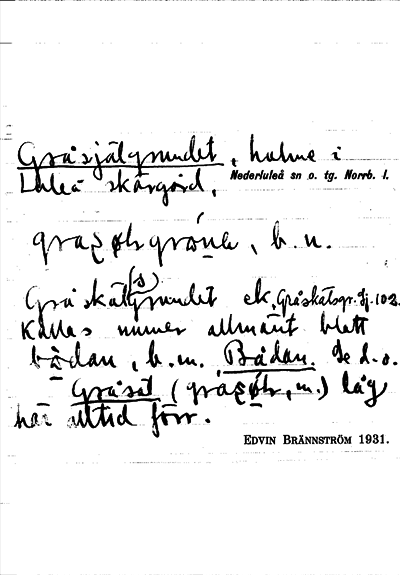 Gråsjälgrundet, holme i
Luleå skärgård, Nederluleå sn o. tg. Norrb. l.
b. n.
(s)
Gråskätgrundet ek. Gråskatsgr. Sj. 103.
Kallas numer allmänt blott
bådan, b. m. Bådan. Se d. o.
Gråsäl (m.) låg
här alltid förr.
EDVIN BRÄNNSTRÖM 1931.